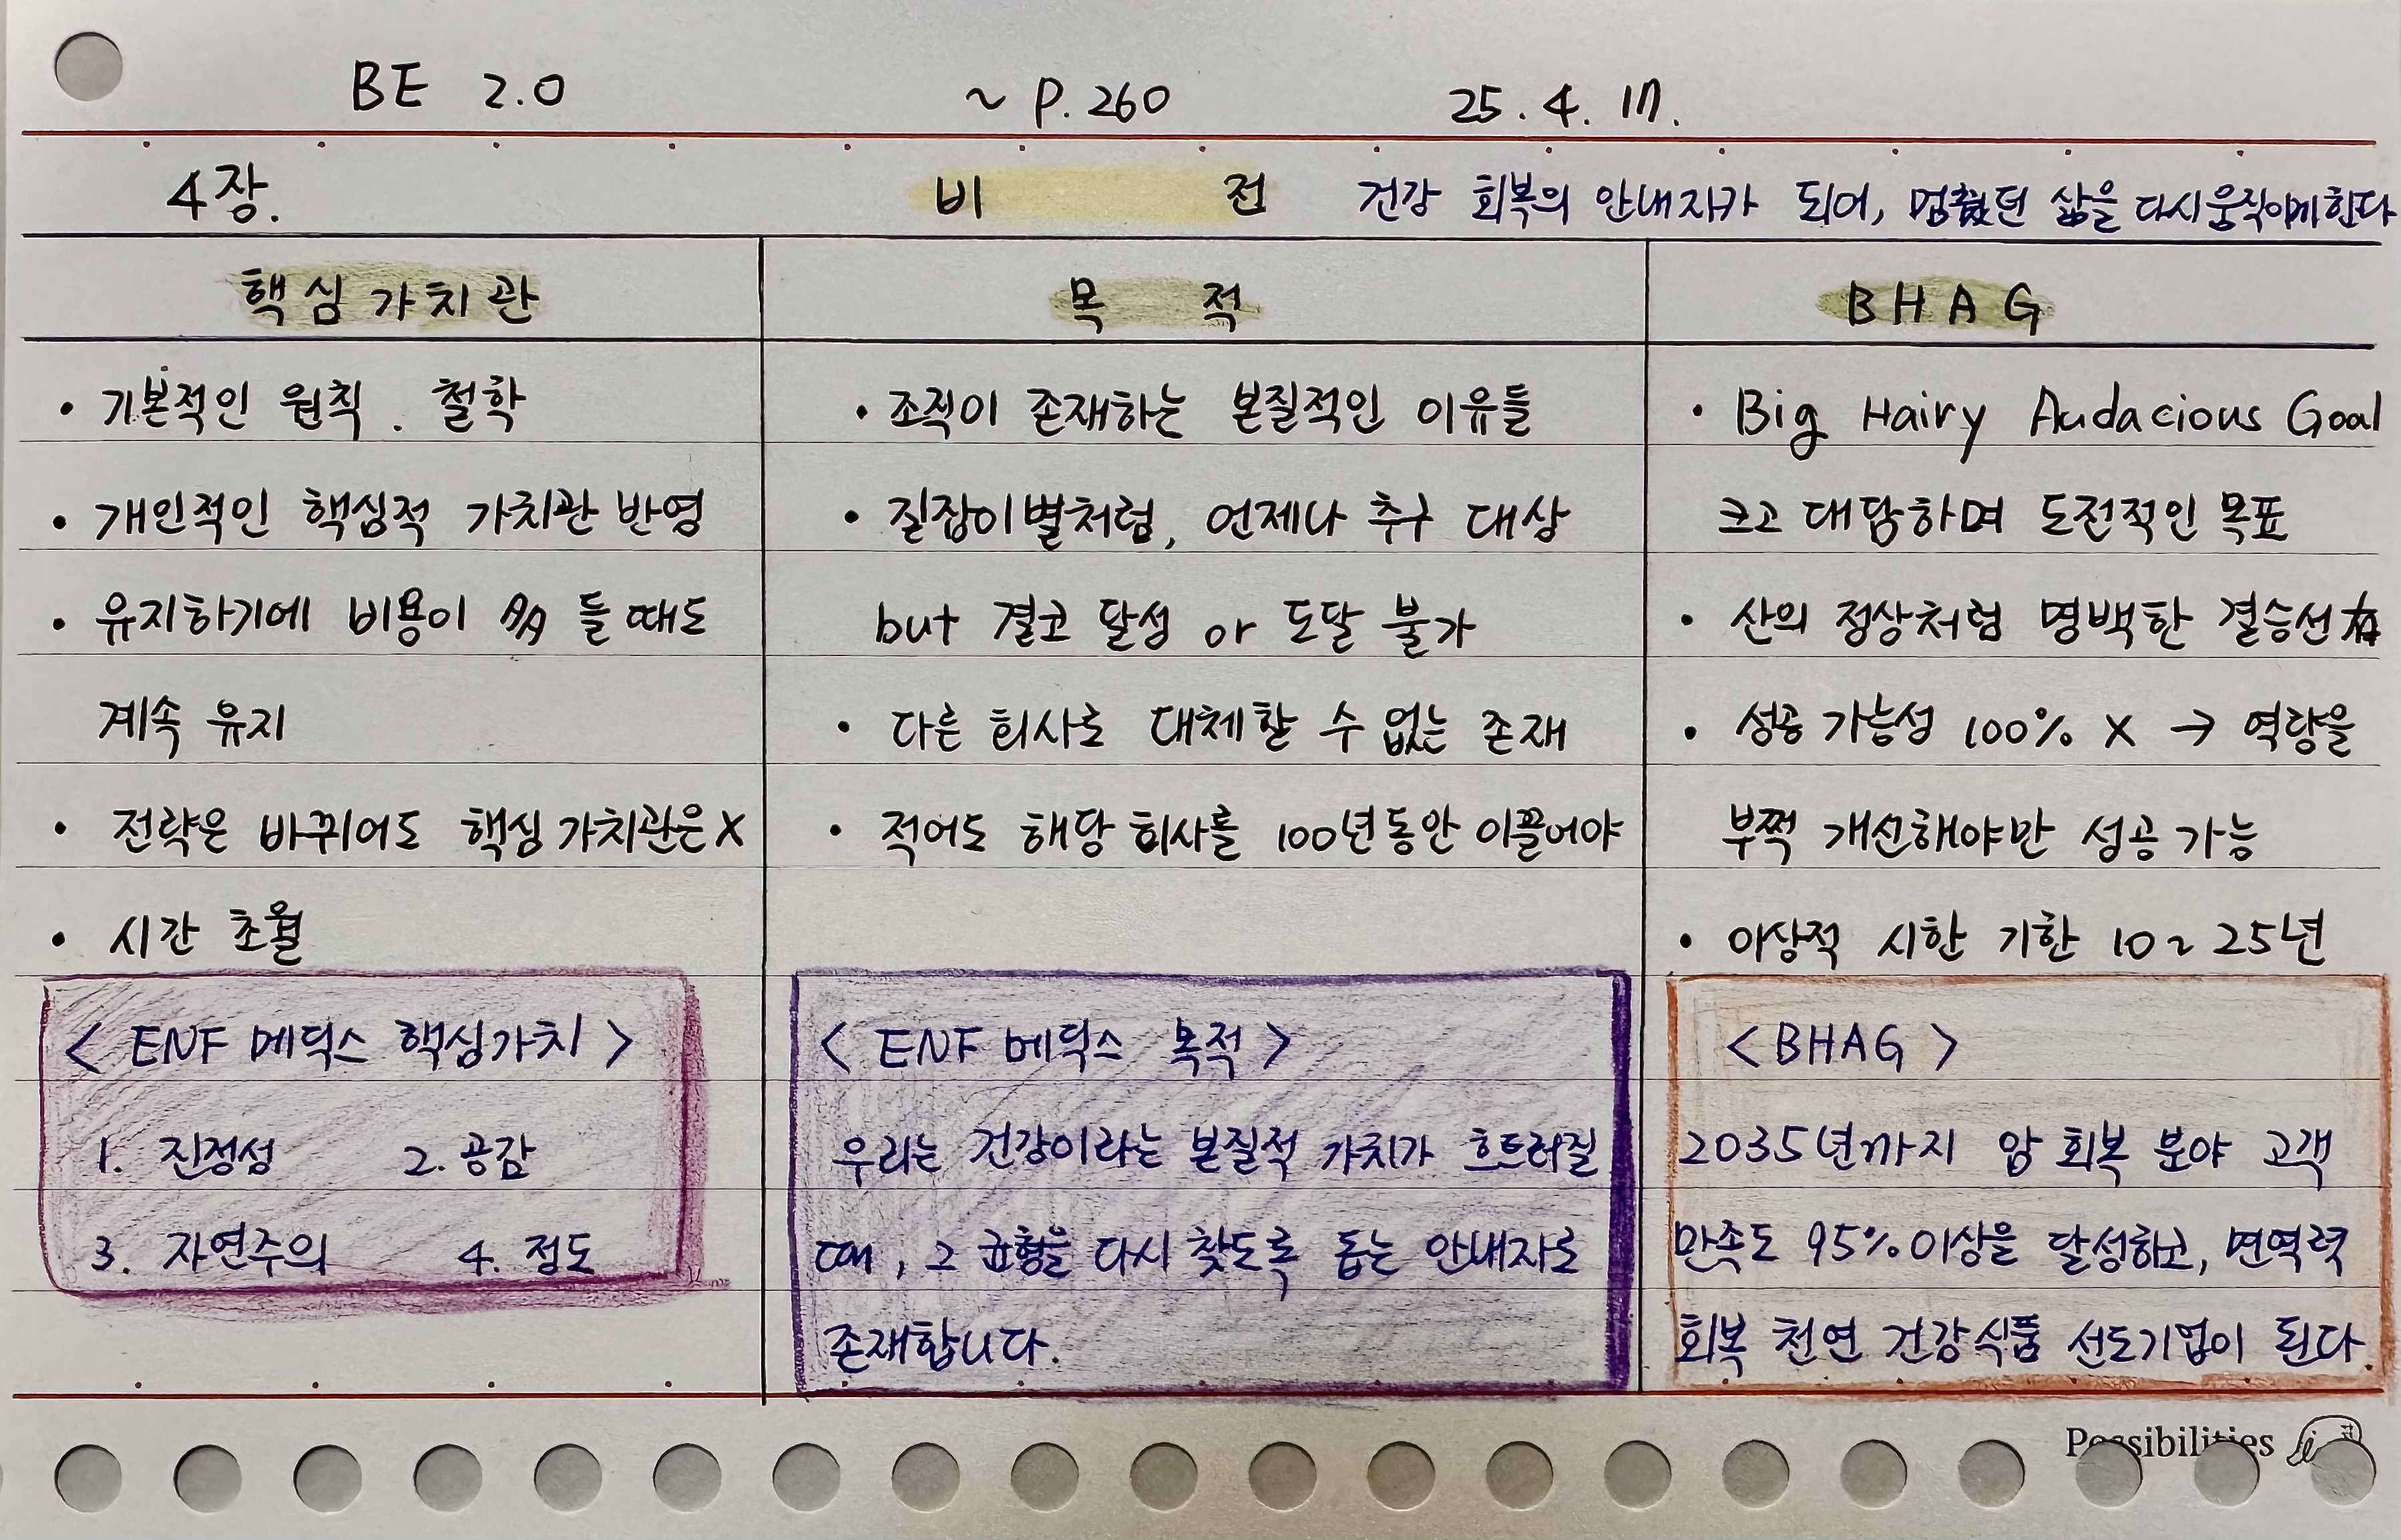 BE 2.0 ~ P. 260 25. 4. 17.
4장. 비 전 건강 회복의 안내자가 되어, 멈췄던 삶을 다시 움직이게 한다
핵심 가치관
• 기본적인 원칙. 철학
• 개인적인 핵심적 가치관 반영
• 유지하기에 비용이 多 들 때도
계속 유지
• 전략은 바뀌어도 핵심 가치관은 X
• 시간 초월
< ENF 메딕스 핵심가치 >
1. 진정성 2. 공감
3. 자연주의 4. 정도
목 적
• 조직이 존재하는 본질적인 이유들
• 길잡이별처럼, 언제나 추구 대상
but 결코 달성 or 도달 불가
• 다른 회사로 대체할 수 없는 존재
• 적어도 해당 회사를 100년동안 이끌어야
< ENF 메딕스 목적 >
우리는 건강이라는 본질적 가치가 흐트러질
때, 그 균형을 다시 찾도록 돕는 안내자로
존재합니다.
BHAG
• Big Hairy Audacious Goal
크고 대담하며 도전적인 목표
• 산의 정상처럼 명백한 결승선 有
• 성공 가능성 100% X → 역량을
부쩍 개선해야만 성공 가능
• 이상적 시한 기한 10~25년
< BHAG >
2035년까지 암 회복 분야 고객
만족도 95% 이상을 달성하고, 면역력
회복 천연 건강식품 선도기업이 된다.
Possibilities